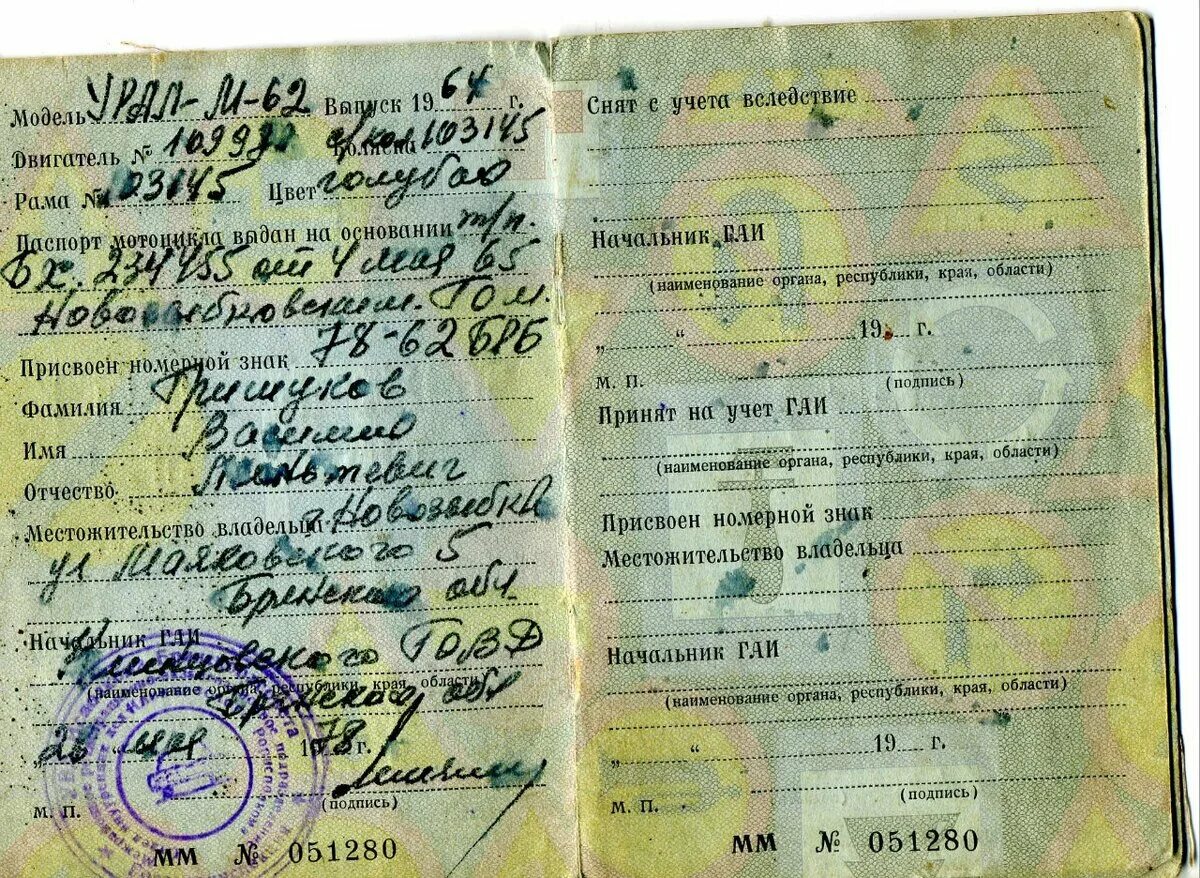 Модель УРАЛ-М-62 Выпуск 1964 г.
Двигатель № 10998 коляска 103145
Рама № 103145 Цвет голубою
Паспорт мотоцикла выдан на основании т/п.
БХ. 234455 от 4 мая 65
Новозыбковским ГОМ.
Присвоен номерной знак 78-62 БРБ
Фамилия Гришуков
Имя
Отчество
Местожительство владельца г. Новозыбков
ул Маяковского 5
Брянской обл
Начальник ГАИ
Клинцовского ГОВД
(наименование органа, республики, края, области)
Брянской обл
„25 “ мая 1978 г.
(подпись)
М. П.
ММ № 051280
Снят с учета вследствие
Начальник ГАИ
(наименование органа, республики, края, области)
„ “ 19 г.
М. П. (подпись)
Принят на учет ГАИ
(наименование органа, республики, края, области)
Присвоен номерной знак
Местожительство владельца
Начальник ГАИ
(наименование органа, республики, края, области)
„ “ 19 г.
(подпись)
М. П.
ММ № 051280